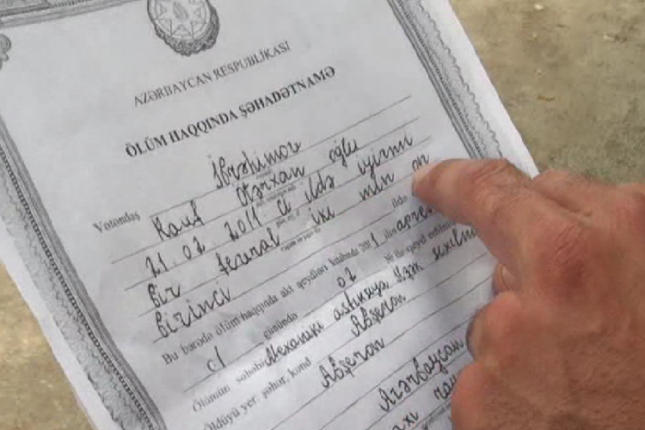 AZƏRBAYCAN RESPUBLİKASI
ÖLÜM HAQQINDA ŞƏHADƏTNAMƏ
İbrahimov
Vətəndaş Rauf Tərxan oğlu
21.02.2011 -ci ildə iyirmi
bir fevral iki min on
birinci ildə
Bu barədə ölüm haqqında akt qeydləri kitabında 2011 -ci ilin aprel
cı günündə 02 № ilə qeyd edilmişdir
Ölümün səbəbi Mexaniki asfiksiya
Öldüyü yer: şəhər, kənd Abşeron
Abşeron
Azərbaycan